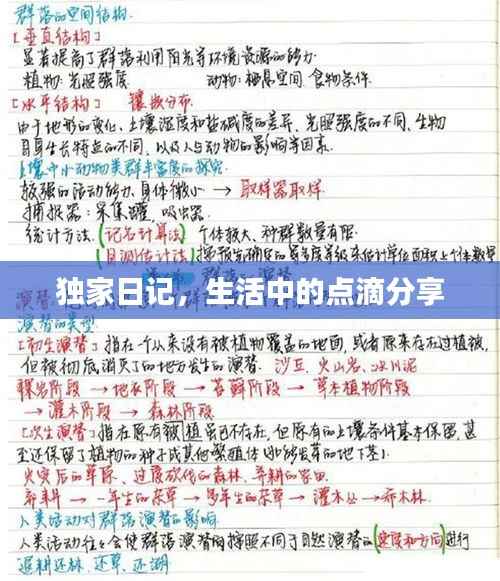 群落的空间结构
[垂直结构]
显著提高了群落利用阳光等环境资源的能力
植物:光照强度 动物:栖息空间 食物条件
[水平结构] 镶嵌分布
由于地形的变化、土壤湿度和盐碱度的差异、光照强度的不同、生物
自身生长特点的不同、以及人与动物的影响等因素
土壤中小动物类群丰富度的探究
较强的活动能力、身体微小 → 取样器取样
捕捉器:采集罐、吸虫器
统计方法 (记名计算法) 个体较大、种群数量有限
(目测估计法)
独家日记,生活中的点滴分享
演替的类型
[初生演替]:指在一个从来没有被植物覆盖的地面,或者原来存在过植被,
但被彻底消灭了的地方发生的演替 沙丘、火山岩、冰川泥
裸岩阶段 → 地衣阶段 → 苔藓阶段 → 草本植物阶段
→ 灌木阶段 → 森林阶段
[次生演替]:指在原有植被虽已不存在,但原有的土壤条件基本保留,甚
至还保留了植物的种子或其他繁殖体(如能发芽的地下茎)
火灾后的草原、过度砍伐的森林、弃耕的农田
弃耕 → 一年生的杂草 → 多年生的杂草 → 灌木丛 → 乔木林
人类活动对群落演替的影响
人类活动往往会使群落演替按照不同于自然演替的(速度和方向)进行
退耕还林、还草、还湖